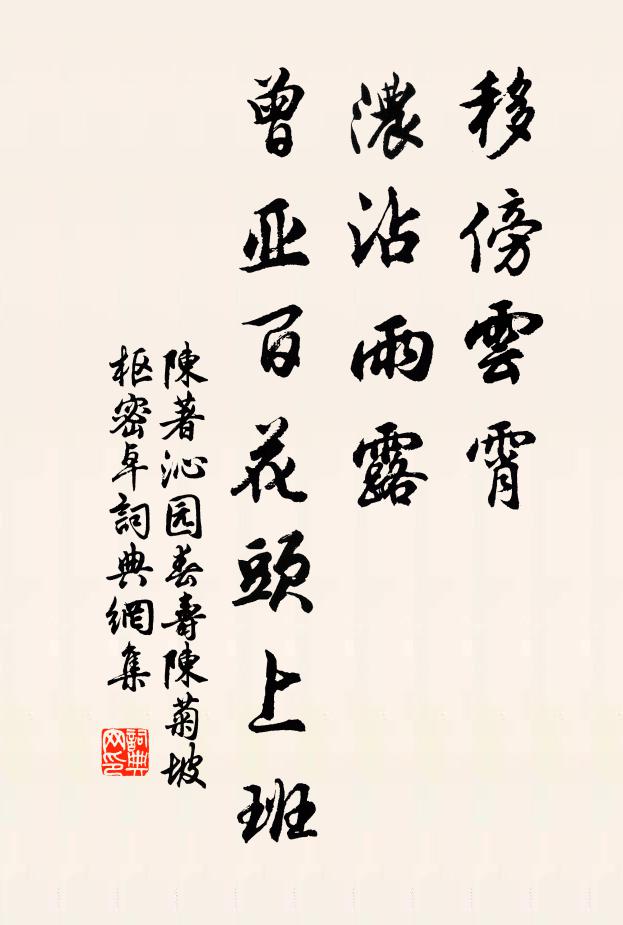 移傍雲霄
濃沾雨露
曾亚百花頭上班
陳著沁园春壽陳菊坡
枢密卓詞典網集
詞典网印